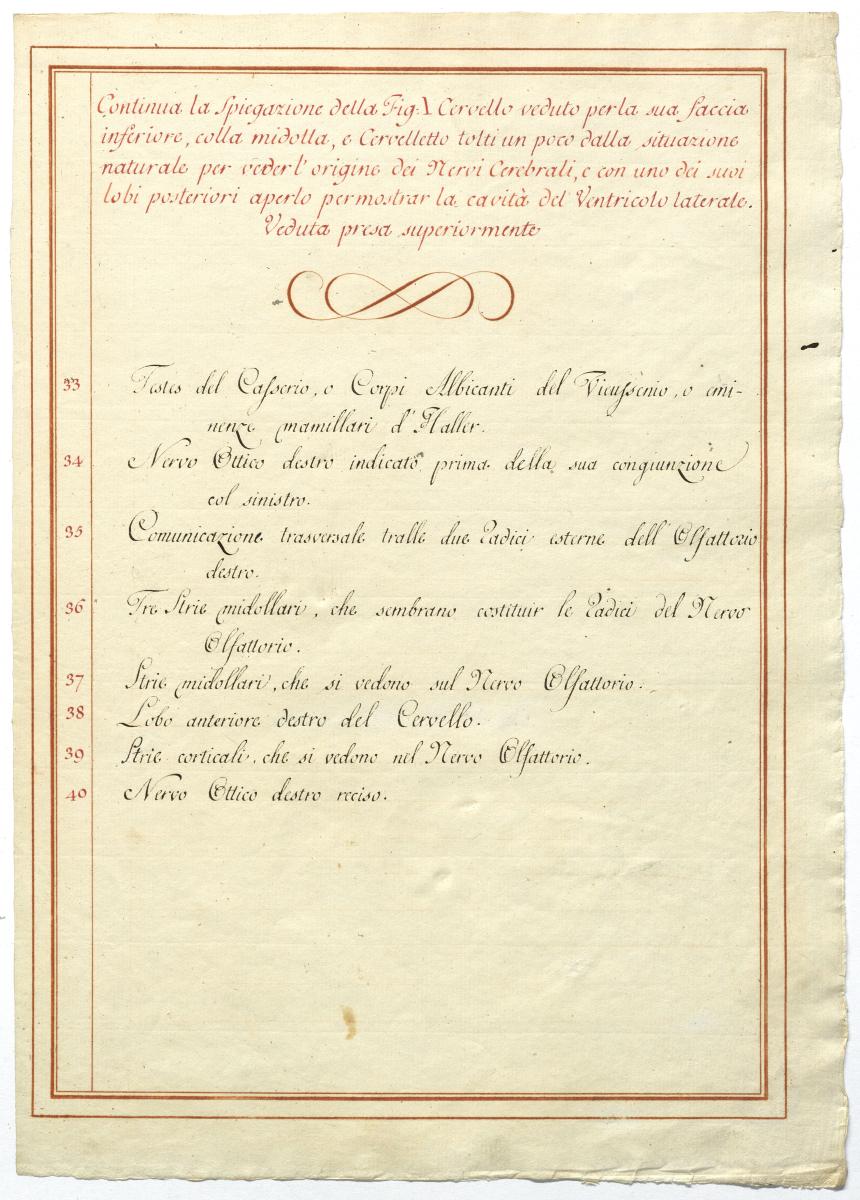 Continua la Spiegazione della Fig. V Cervello veduto per la sua faccia
inferiore, colla midolla, e Cervelletto tolti un poco dalla situazione
naturale per veder l' origine dei Nervi Cerebrali, e con uno dei suoi
lobi posteriori aperto per mostrar la cavità del Ventricolo laterale.
Veduta presa superiormente
33 Testes del Casserio, o Corpi Albicanti del Vieussenio, o emi-
nenze mamillari d' Haller.
34 Nervo Ottico destro indicato prima della sua congiunzione
col sinistro.
35 Comunicazione trasversale tralle due Radici esterne dell' Olfattorio
destro.
36 Tre Strie midollari, che sembrano costituir le Radici del Nervo
Olfattorio.
37 Strie midollari, che si vedono sul Nervo Olfattorio.
38 Lobo anteriore destro del Cervello.
39 Strie corticali, che si vedono nel Nervo Olfattorio.
40 Nervo Ottico destro reciso.